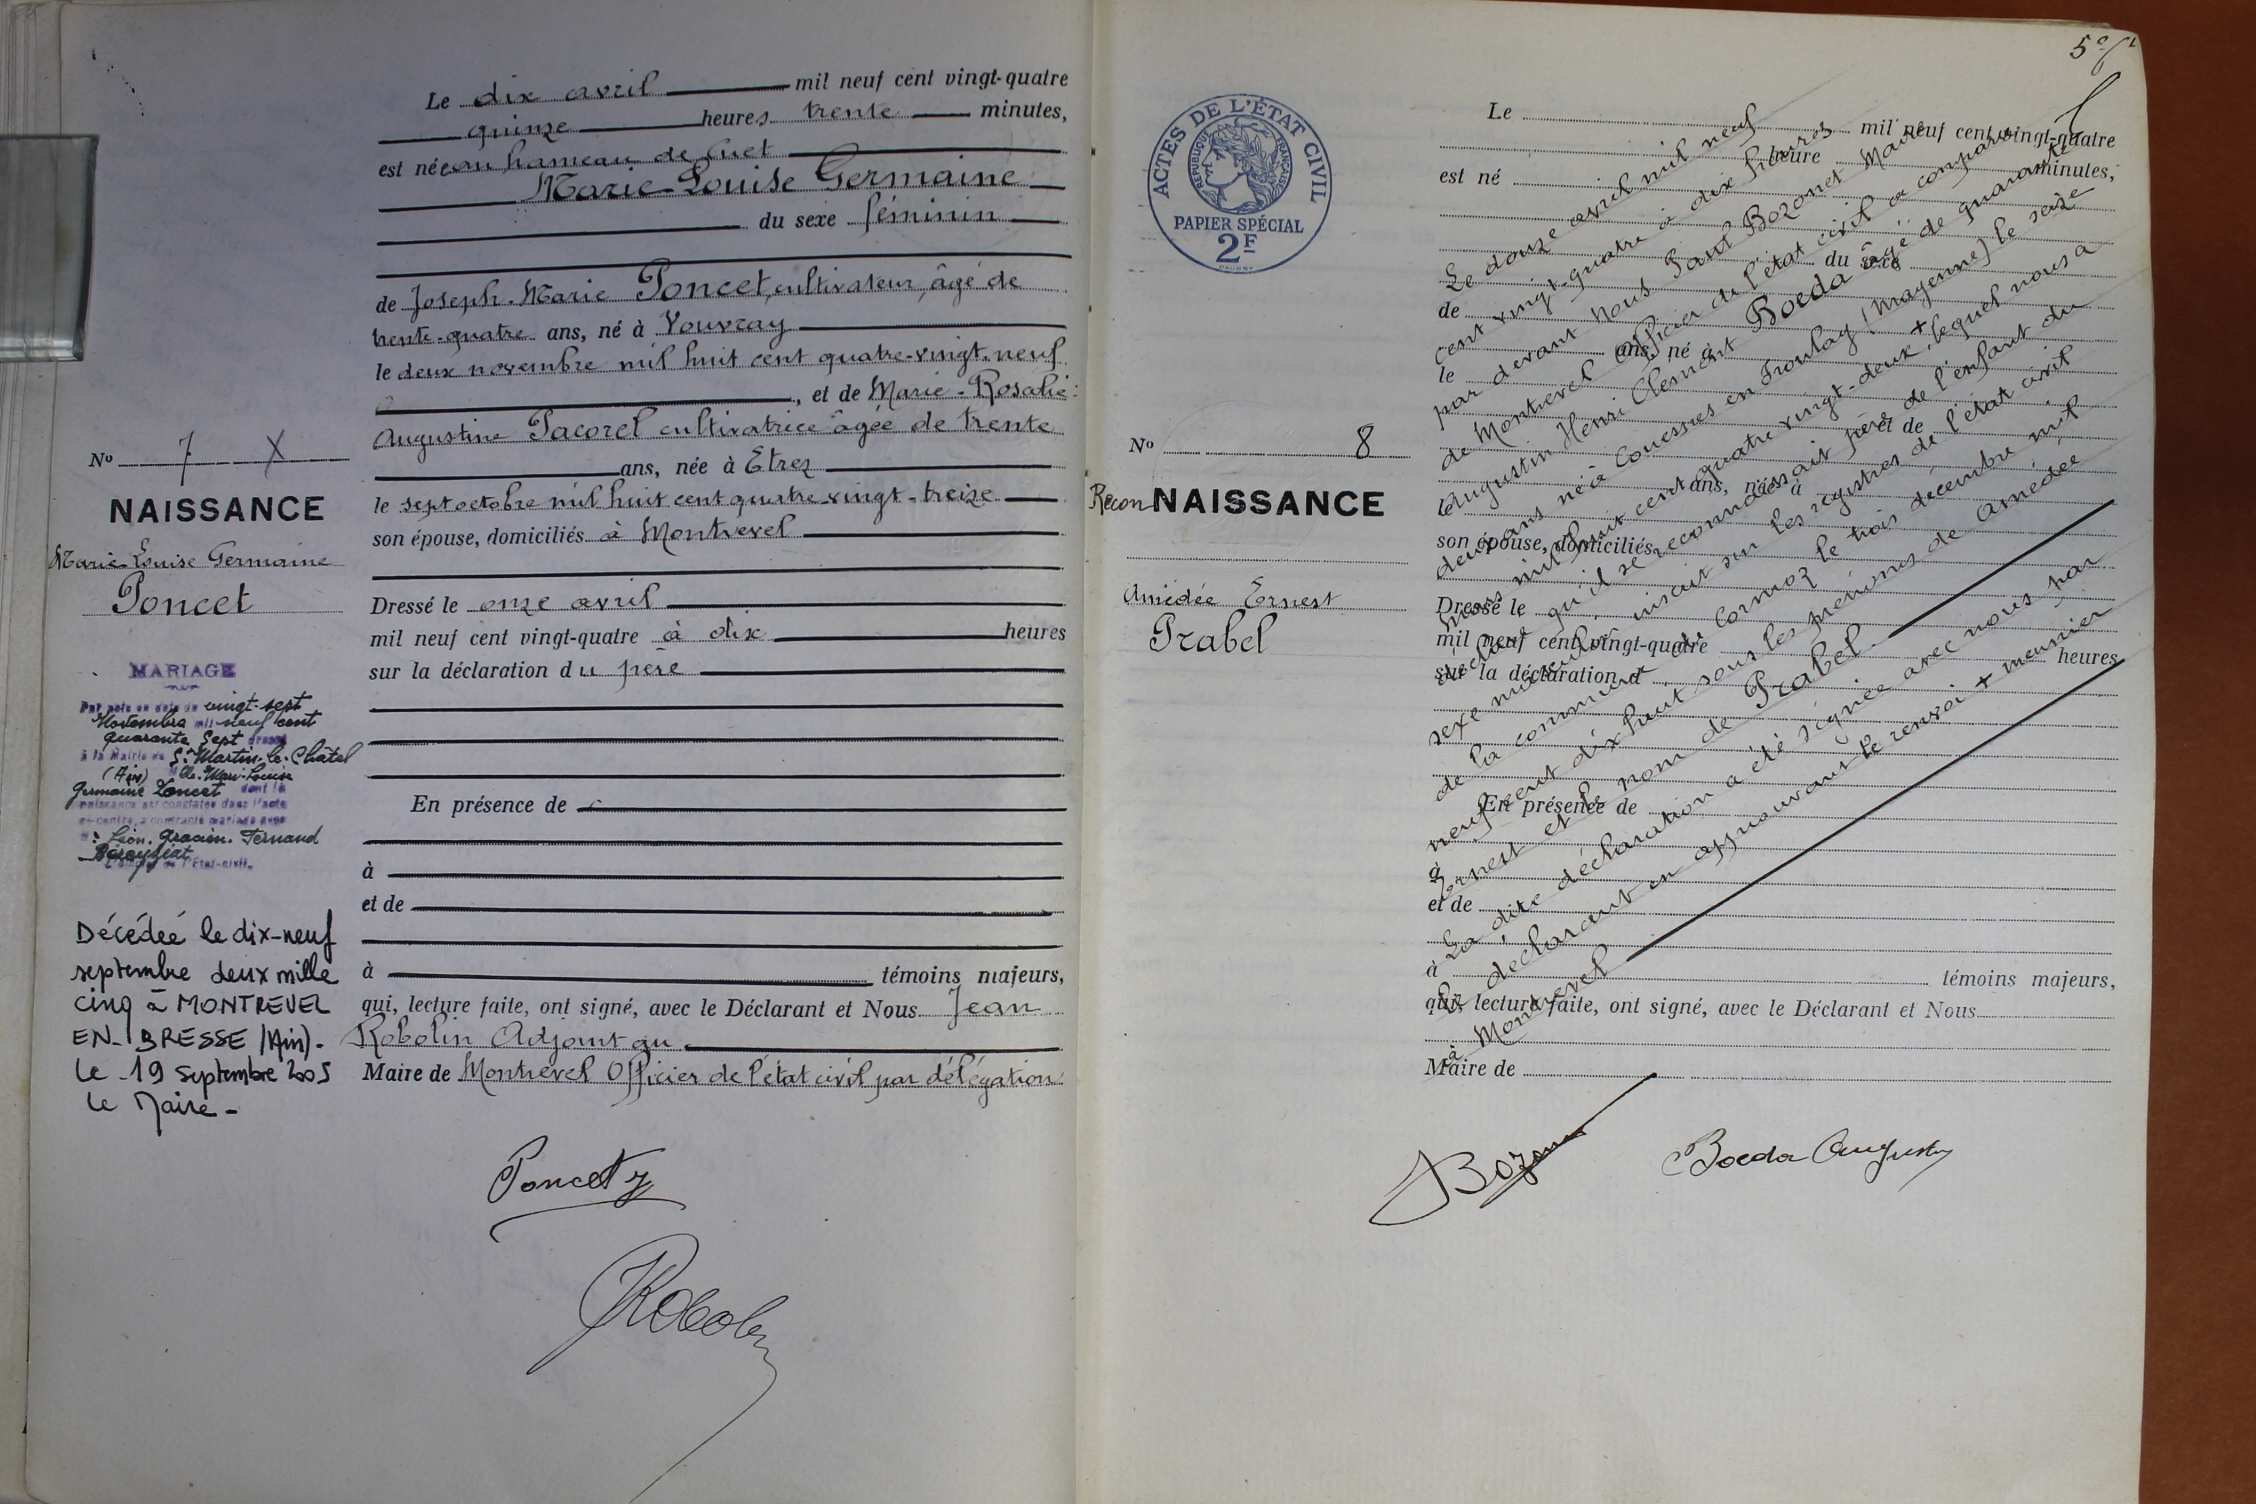 Le dix avril mil neuf cent vingt-quatre
quinze heures trente minutes,
est née au hameau de Cuet
Marie-Louise Germaine
du sexe féminin
de Joseph-Marie Poncet, cultivateur, âgé de
trente-quatre ans, né à Vouvray
le deux novembre mil huit cent quatre-vingt-neuf
, et de Marie-Rosalie-
Augustine Pacorel cultivatrice âgée de trente
ans, née à Etrez
le sept octobre mil huit cent quatre-vingt-treize
son épouse, domiciliés à Montrevel
Dressé le onze avril
mil neuf cent vingt-quatre à dix heures
sur la déclaration du père
En présence de
à
et de
à témoins majeurs,
qui, lecture faite, ont signé, avec le Déclarant et Nous Jean
Robolin Adjoint au
Maire de Montrevel Officier de l'état civil par délégation
Poncet
Robolin
No 7 X
NAISSANCE
Marie-Louise Germaine
Poncet
MARIAGE
Par acte en date du vingt-sept
Novembre mil neuf cent
quarante sept dressé
à la Mairie de St Martin-le-Châtel
(Ain) Mlle Marie-Louise
Germaine Poncet dont la
naissance est constatée dans l'acte
ci-contre, a contracté mariage avec
Mr Léon, Gracien, Fernand
l'Etat-civil.
Décédée le dix-neuf
septembre deux mille
cinq à MONTREVEL
EN-BRESSE (Ain).
Le 19 septembre 2005
Le Maire-
ACTES DE L'ÉTAT CIVIL
RÉPUBLIQUE FRANÇAISE
PAPIER SPÉCIAL
2F
No 8
Recon NAISSANCE
Amédée Ernest
Prabel
Le mil neuf cent vingt-quatre
heure minutes,
est né
du sexe
de
ans, né à
le
et de
ans, née à
le
son épouse, domiciliés
Dressé le
mil neuf cent vingt-quatre heures
sur la déclaration d
En présence de
à
et de
à témoins majeurs,
qui, lecture faite, ont signé, avec le Déclarant et Nous
Maire de
Le douze avril mil neuf
cent vingt-quatre à dix heures
par devant Nous Paul Bozonet Maire
de Montrevel Officier de l'état civil a comparu
Augustin Henri Clément Boëda âgé de quarante
deux ans né à Couesmes en Froulay (Mayenne) le seize
mars mil huit cent quatre vingt-deux, + lequel nous a
déclaré qu'il se reconnaissait père de l'enfant du
sexe masculin inscrit sur les registres de l'état civil
de la commune de Cormoz le trois décembre mil
neuf cent dix huit sous les prénoms de Amédée
Ernest et le nom de Prabel
La dite déclaration a été signée avec nous par
le déclarant en approuvant le renvoi + meunier
à Montrevel
Bozonet
Boeda Augustin